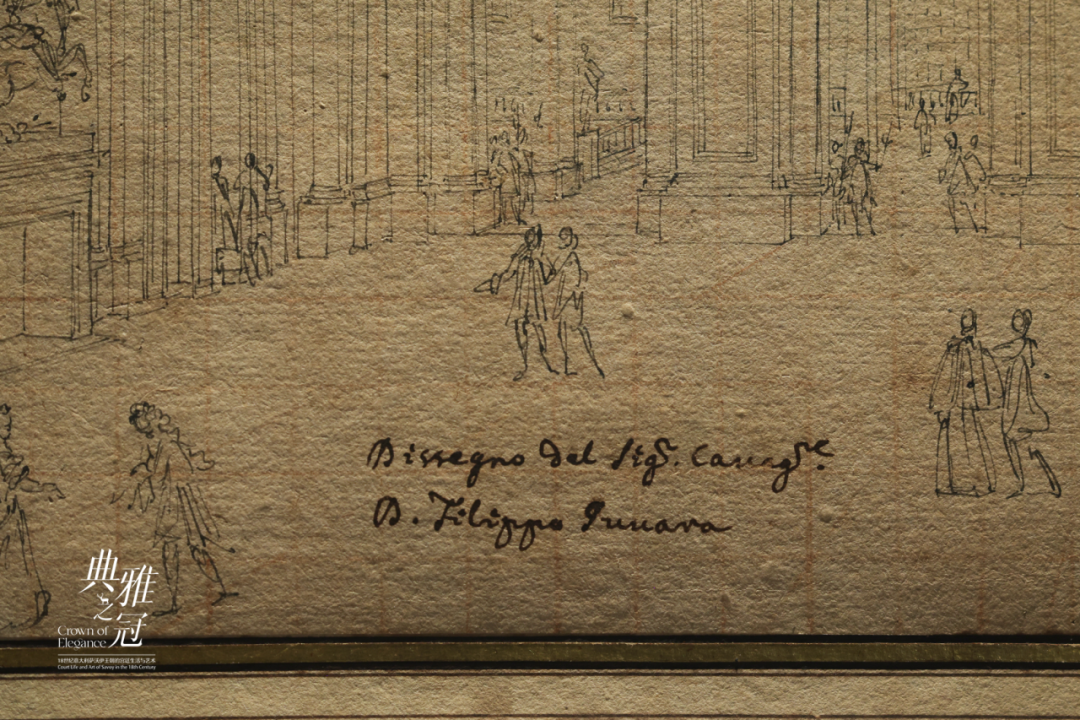 Dissegno del Sigr. Cavagre.
D. Filippo Juuara
典雅之冠
Crown of
Elegance
18世纪意大利萨沃伊王朝的宫廷生活与艺术
Court Life and Art of Savoy in the 18th Century